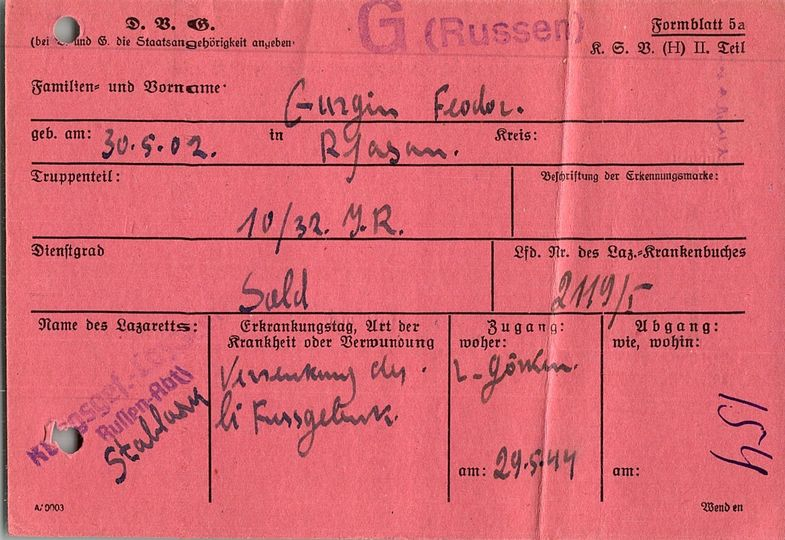 D. V. G.
(bei V. und G. die Staatsangehörigkeit angeben.
G (Russen)
Formblatt 5a
K. S. V. (H) II. Teil
Familien- und Vorname:
Gurgin Feodor.
geb. am: 30.5.02. in Rjasan. Kreis:
Truppenteil:
10/32. J.R.
Beschriftung der Erkennungsmarke:
Dienstgrad
Sold
Lfd. Nr. des Laz.-Krankenbuches
2119/I
Name des Lazaretts:
Russen-Abtl
Erkrankungstag, Art der
Krankheit oder Verwundung
des
li Fussgelenk.
Zugang:
woher:
am: 29.5.44
Abgang:
wie, wohin:
154
am:
A/0003
Wenden